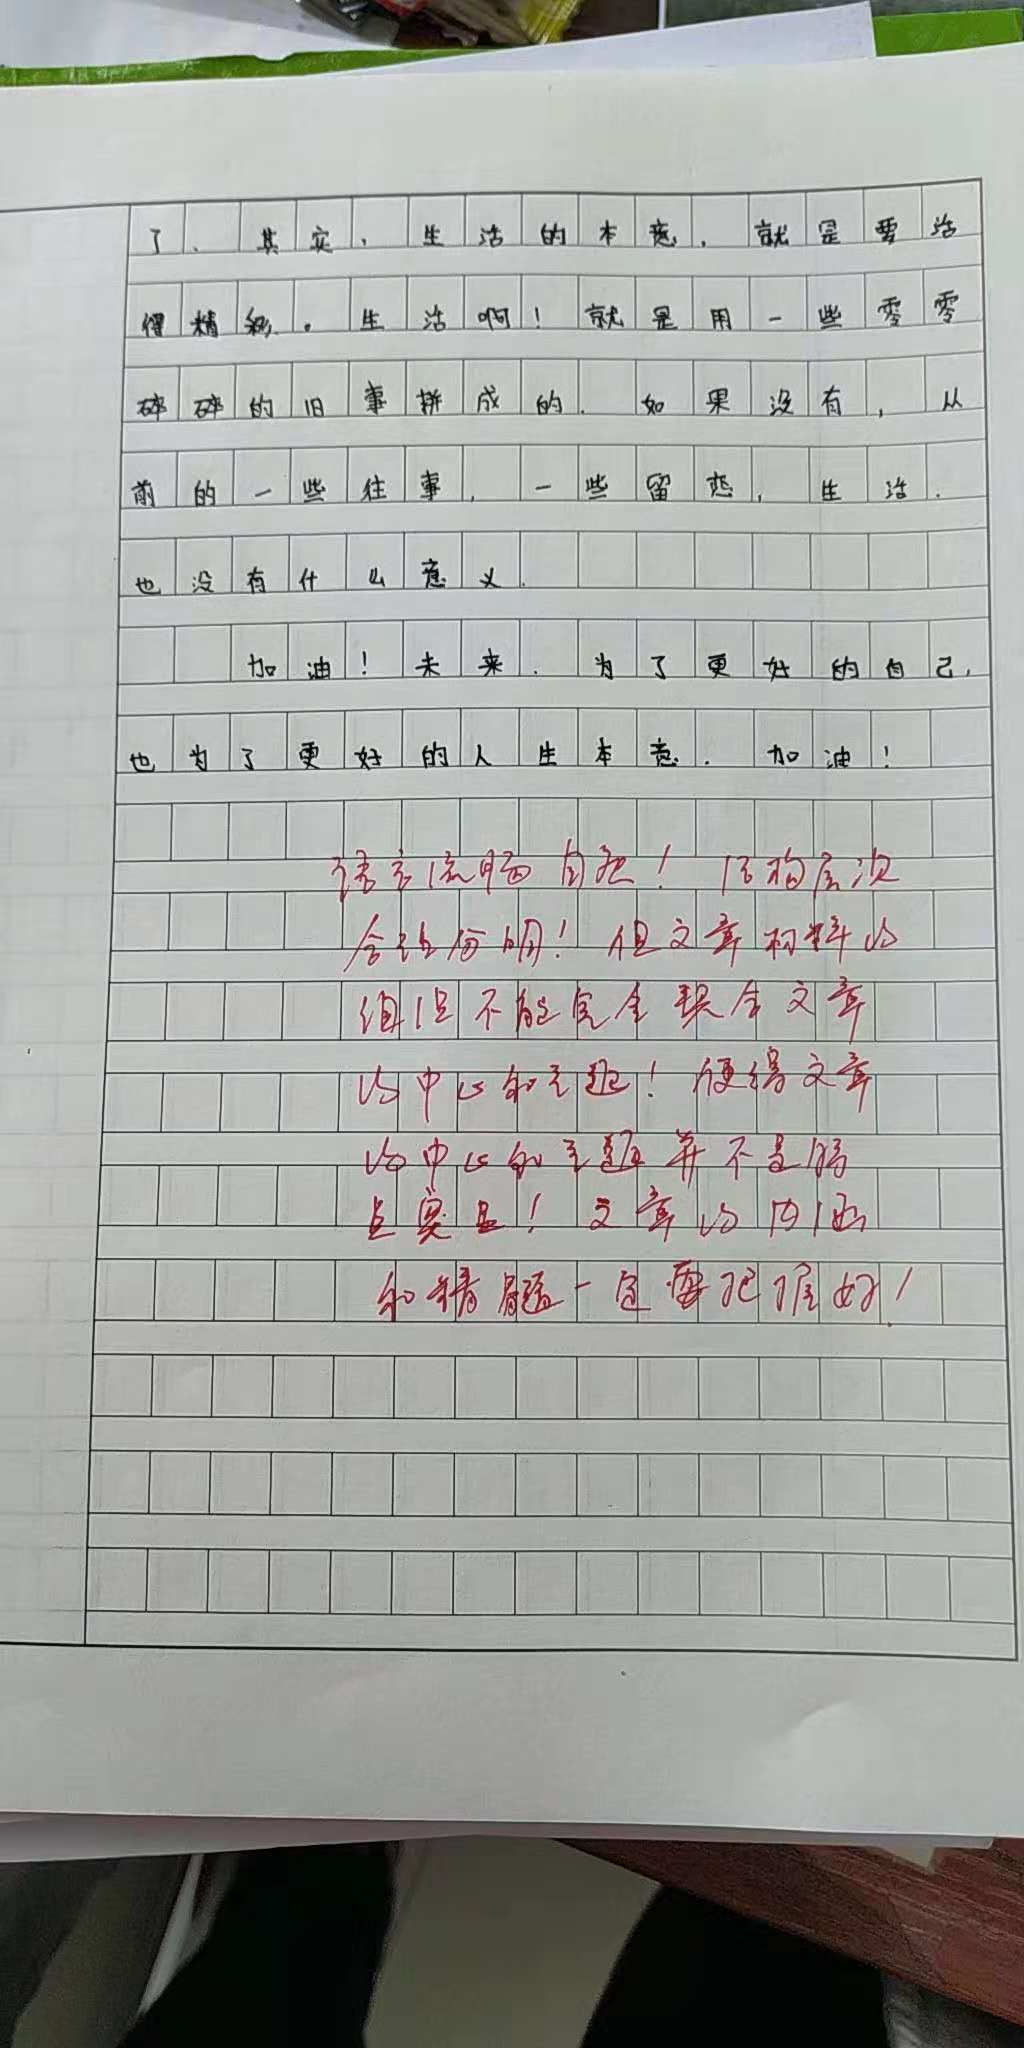 了、其实，生活的本意，就是要活
得精彩。生活啊！就是用一些零零
碎碎的旧事拼成的．如果没有，从
前的一些往事，一些留恋，生活．
也没有什么意义．
加油！未来．为了更好的自己，
也为了更好的人生本意．加油！
语言流畅自然！结构层次
合理分明！但文章材料的
组织不能完全契合文章
的中心和主题！使得文章
的中心和主题并不是
突显！文章的内涵
和精髓一定要把握好！